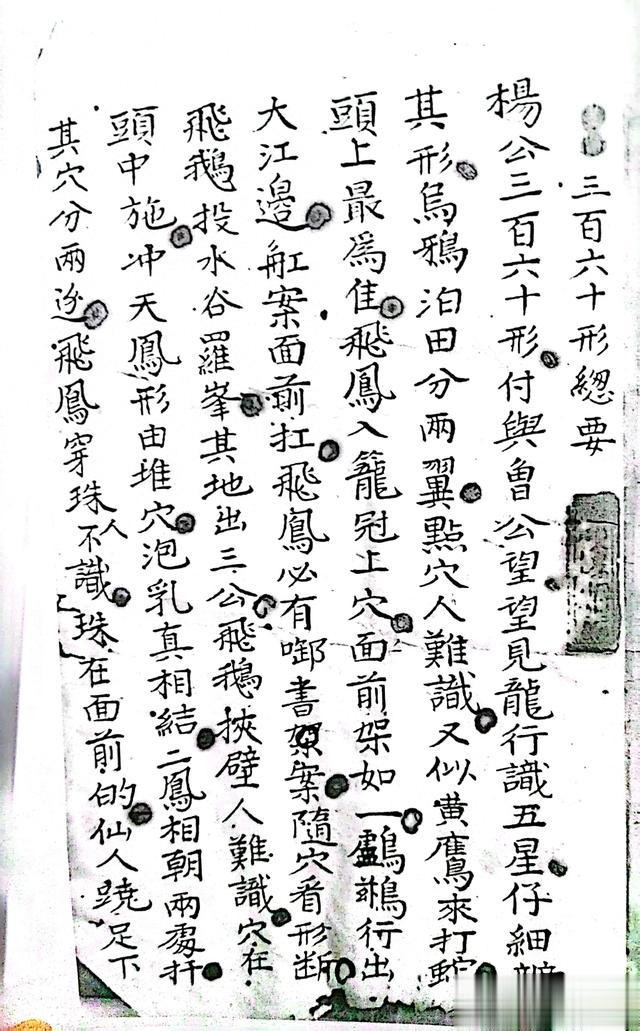 三百六十形總要
楊公三百六十形付與曾公望望見龍行識五星仔細辨
其形烏鴉泊田分兩翼點穴人難識又似黃鷹來打蛇
頭上最為佳飛鳳入籠冠上穴面前架如一鸕鶿行出
大江邊缸案面前扛飛鳳必有啣書架案隨穴看形斷
飛鵝投水谷羅峯其地出三公飛鵝挾壁人難識穴在
頭中施冲天鳳形由堆穴泡乳真相結二鳳相朝兩處扞
其穴分兩边飛鳳穿珠人不識珠在面前的仙人蹺足下